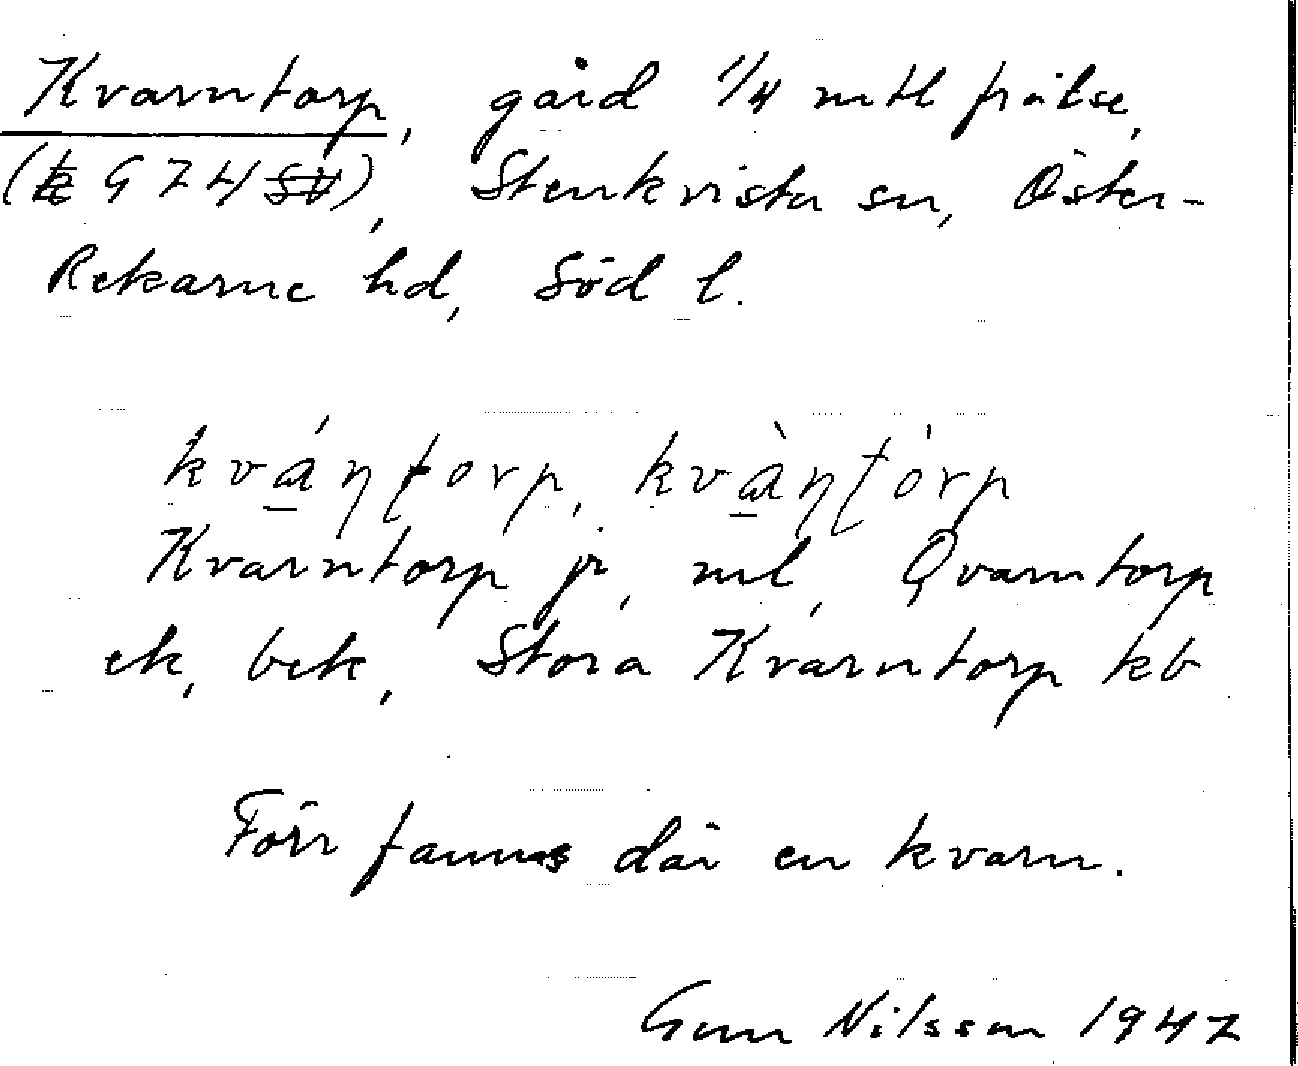 Kvarntorp, gård 1/4 mtl frälse,
(ek G 7 4 SV), Stenkvista sn, Öster-
Rekarne hd, Söd l.
kvá̱ṇṭorp, kvà̱ṇṭòrp
Kvarntorp jr, ml, Qvarntorp
ek, bek, Stora Kvarntorp kb
Förr fanns där en kvarn.
Gun Nilsson 1947